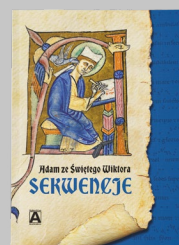 Adam ze Świętego Wiktora
SEKWENCJE
A